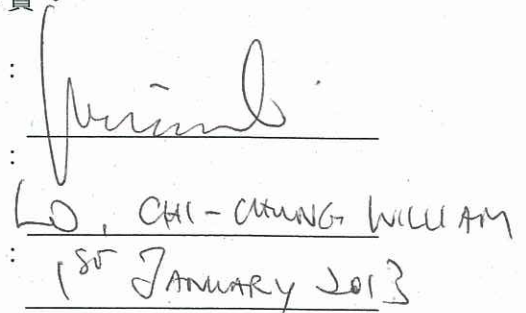 :
:
LO, CHI-CHUNG WILLIAM
:
1ST JANUARY 2013